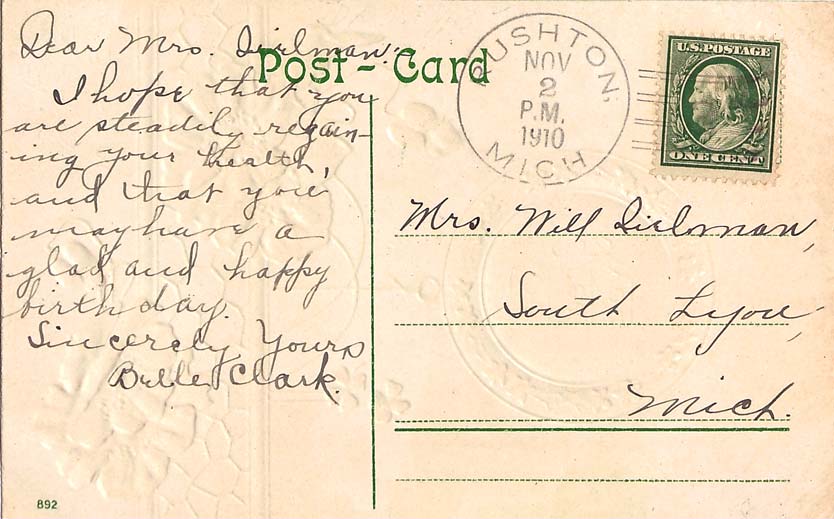 Post-Card
RUSHTON,
NOV
2
P.M.
1910
MICH
U.S. POSTAGE
ONE CENT
Dear Mrs. Dielman:
I hope that you
are steadily regain-
ing your health,
and that you
may have a
glad and happy
birthday.
Sincerely Yours
Belle Clark.
Mrs. Will Dielman,
South Lyon,
Mich.
892